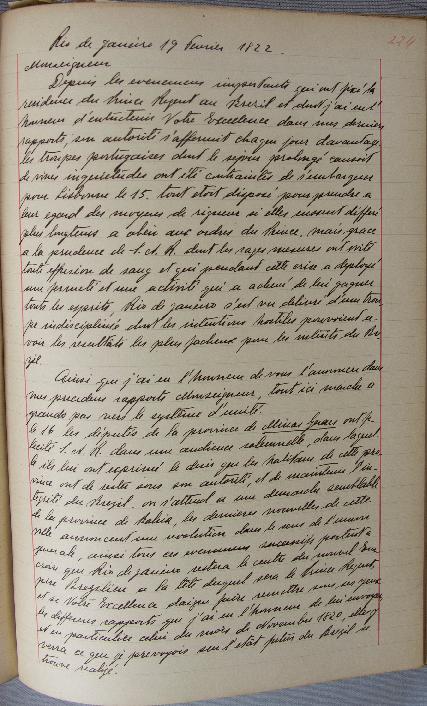 224
Rio de Janeiro 19 Fevrier 1822.
Monseigneur
Depuis les evenemens importants qui ont fixé la
residence du Prince Regent au Bresil et dont j'ai eu l'
honneur d'entretenir Votre Excellence dans mes derniers
rapports, son autorité s'affermit chaque jour davantage.
les troupes portugaises dont le sejour prolongé causoit
de vives inquietudes ont été contraintes de s'embarquer
pour Lisbonne le 15. tout etoit disposé pour prendre a
leur egard des moyens de rigueur si elles eussent differé
plus longtems a obeir aux ordres du Prince. mais grace
a la prudence de S. A. R. dont les sages mesures ont evité
toute effusion de sang et qui pendant cette crise a deployé
une fermeté et une activité qui a achevé de lui gagner
tous les esprits, Rio de Janeiro s'est vu delivré d'une trou
pe indisciplinée dont les intentions hostiles pouvoient a-
voir les resultats les plus facheux pour les interets du Bre
zil.
Ainsi que j'ai eu l'honneur de vous l'annoncer dans
mes precedens rapports Monseigneur, tout ici marche a
grands pas vers le système d'unité.
le 16 les députés de la province de Minas Geraes ont fe-
licité S. A. R. dans une audience solennelle, dans laquel
le ils lui ont exprimé le desir que les habitans de cette pro
vince ont de rester sous son autorité, et de maintenir l'in-
tegrité du Brezil. on s'attend a une demande semblable
de la province de Bahia, les dernieres nouvelles de cette
ville annoncent une revolution dans le sens de l'union
generale, ainsi tous ces evenemens successifs portent a
croire que Rio de Janeiro restera le centre du nouvel Em
pire Brezilien a la tete duquel sera le Prince Regent,
et si Votre Excellence daigne faire remettre sous ses yeux
les differens rapports que j'ai eu l'honneur de lui envoyer
et en particulier celui du mois de Novembre 1820, elle y
verra ce que je prevoyois sur l'état futur du Brezil se
trouve realisé.